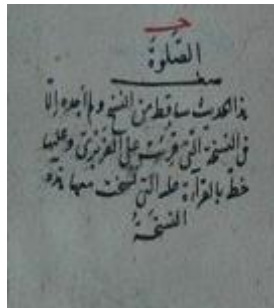 الصلوة
هذا الحديث ساقط من النسخ ولم أجده إلا
في النسخة التي قرئت على الغريزي وعليها
خط بالقراءة عليه التي نسخت معها هذه
النسخة